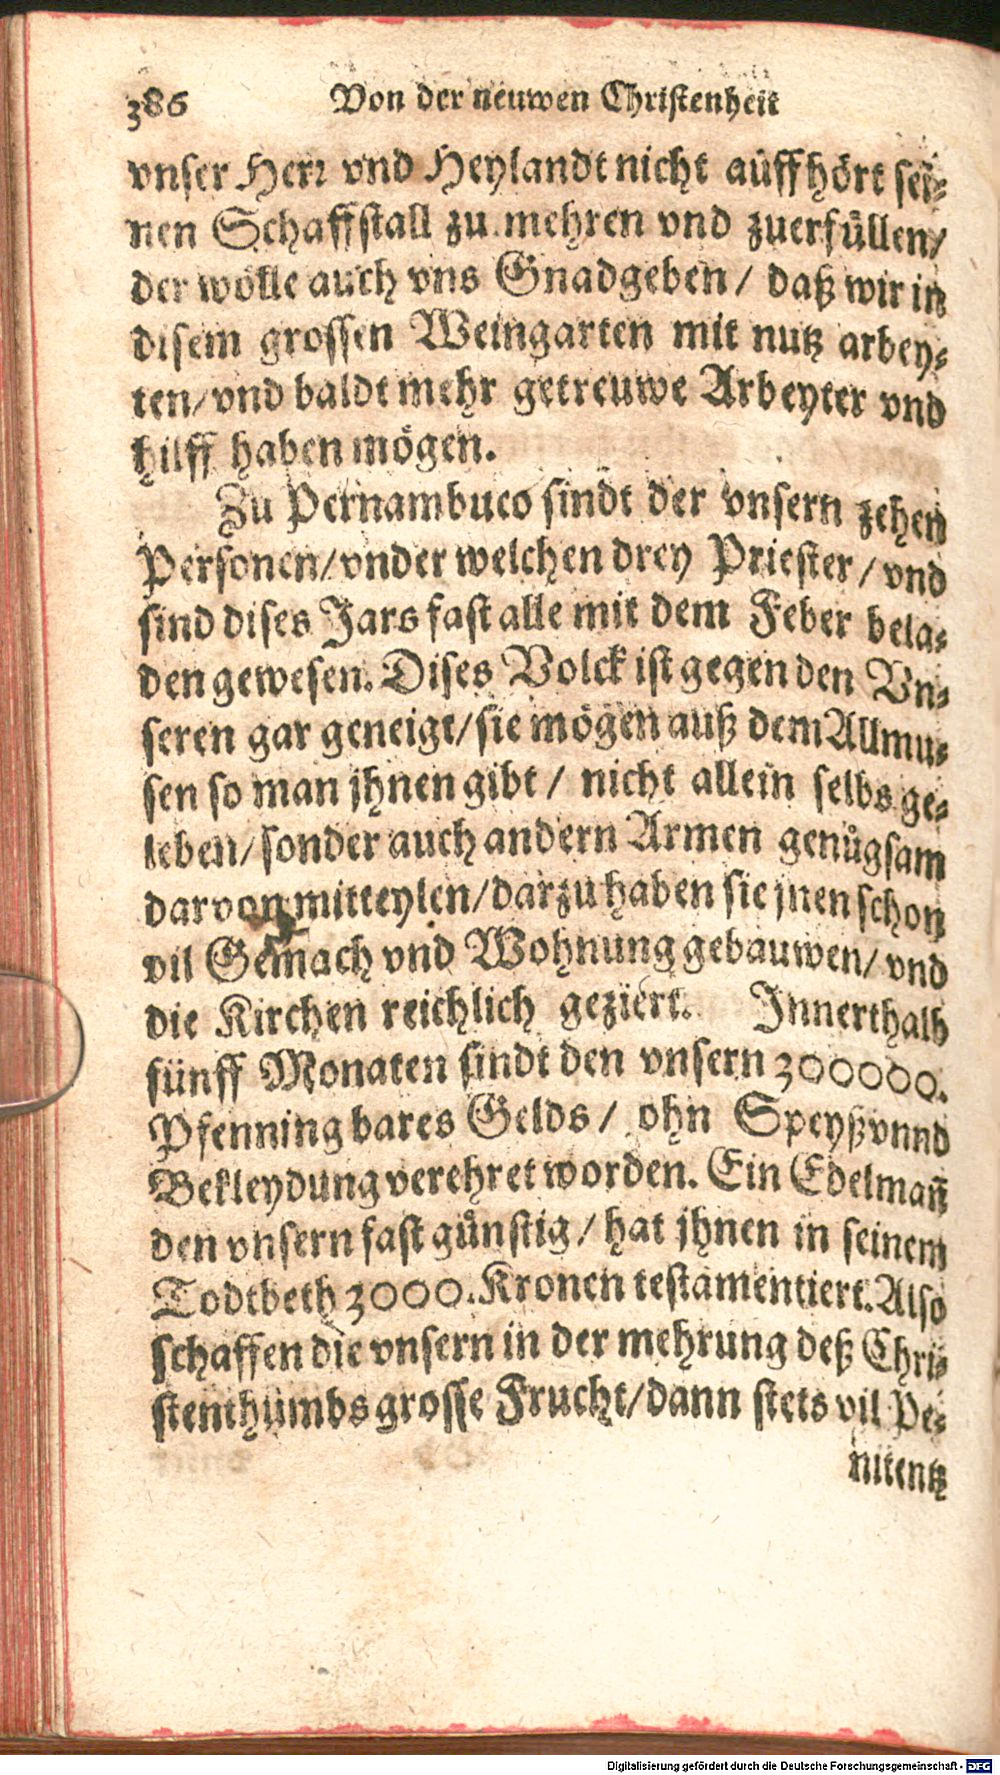 386 Von der neuwen Christenheit
vnser Herr vnd Heylandt nicht auffhört sei-
nen Schaffstall zu mehren vnd zuerfüllen/
der wölle auch vns Gnad geben / daß wir in
disem grossen Weingarten mit nutz arbey-
ten/vnd baldt mehr getreuwe Arbeyter vnd
hilff haben mögen.
Zu Pernambuco sindt der vnsern zehen
Personen/vnder welchen drey Priester / vnd
sind dises Jars fast alle mit dem Feber bela-
den gewesen. Dises Volck ist gegen den Vn-
seren gar geneigt/sie mögen auß dem Allmu-
sen so man jhnen gibt / nicht allein selbs ge-
leben/sonder auch andern Armen genůgsam
darvon mitteylen/darzu haben sie jnen schon
vil Gemach vnd Wohnung gebauwen/ vnd
die Kirchen reichlich geziert. Innerthalb
fünff Monaten sindt den vnsern 300000.
Pfenning bares Gelds / ohn Speyß vnnd
Bekleydung verehret worden. Ein Edelmañ
den vnsern fast günstig / hat jhnen in seinem
Todtbeth 3000. Kronen testamentiert. Also
schaffen die vnsern in der mehrung deß Chri-
stenthumbs grosse Frucht/dann stets vil Pe-
nitentz
Digitalisierung gefördert durch die Deutsche Forschungsgemeinschaft - DFG